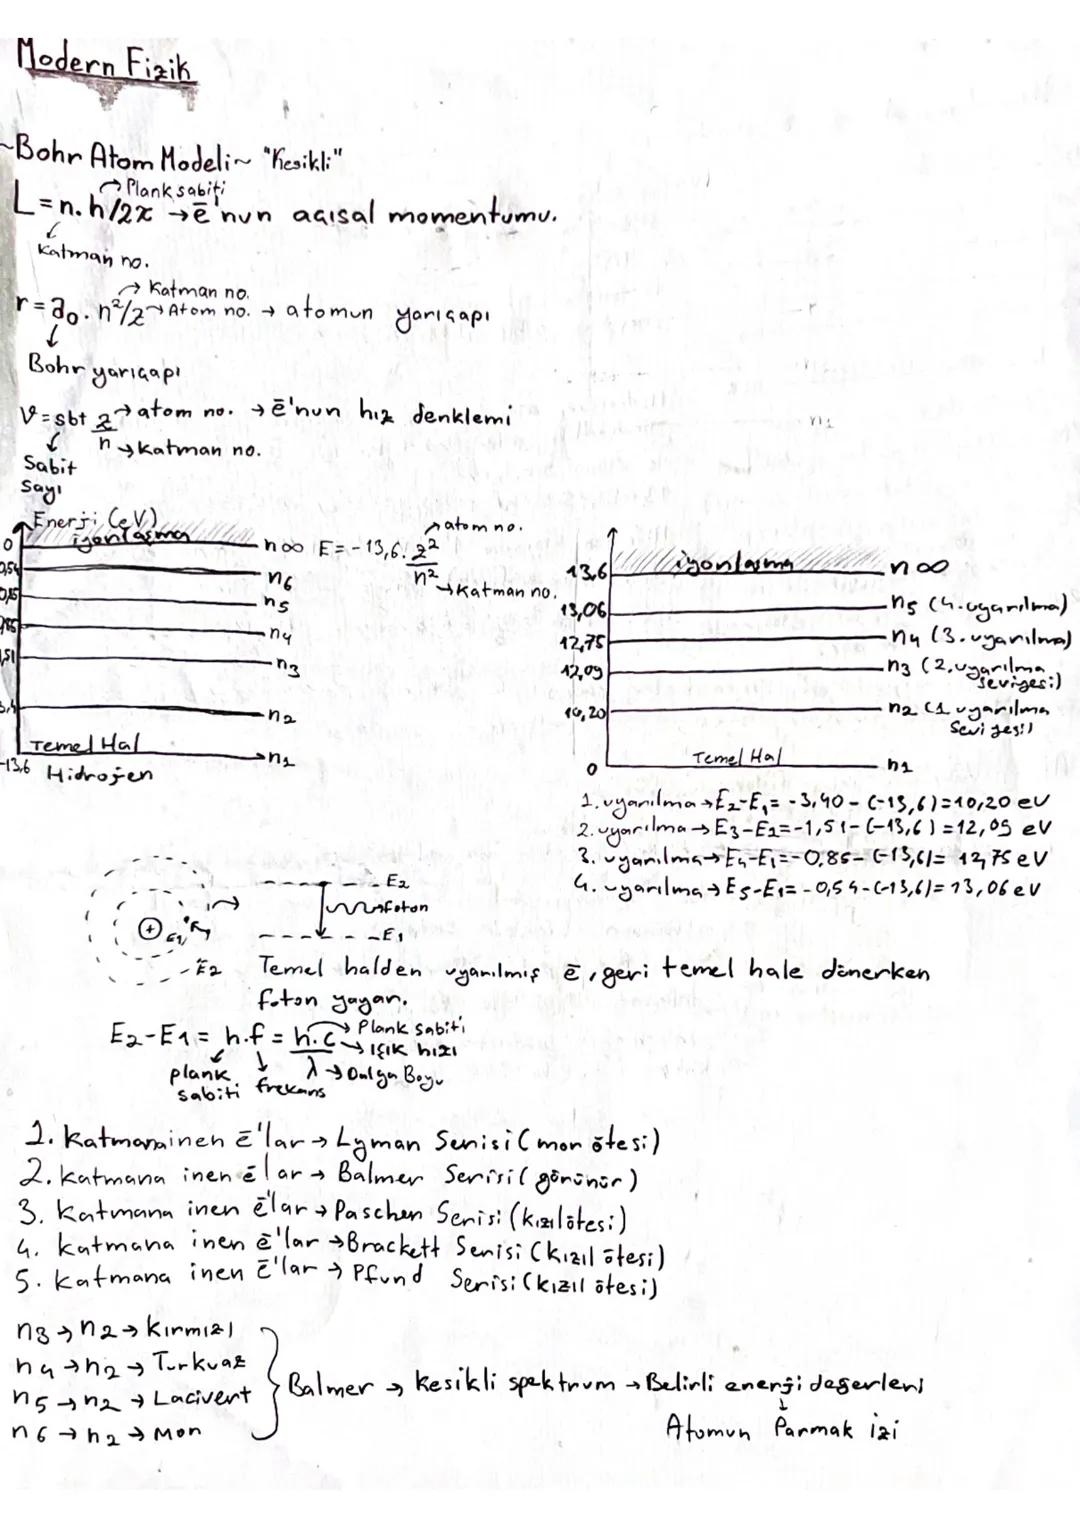 Modern Fizik
~Bohr Atom Modeli~ "Kesikli"
→ Plank sabiti
L=n.h/2π → ē'nun açısal momentumu.
Katman no.
→ Katman no.
r = a₀.n²/z → Atom no. → atomun yarıçapı
Bohr yarıçapı
V=sbt z/n → atom no. → ē'nun hız denklemi
→ Katman no.
Sabit
Sayı
Enerji (eV)
iyonlaşma
0
n∞
E=-13,6. z²/n²
→ atom no.
→ Katman no.
0,54
n6
n5
n4
1,51
n3
n2
Temel Hal
-13,6
→ n1
Hidrojen
13,6 iyonlaşma n∞
13,06 n5 (4.uyarılma)
12,75 n4 (3.uyarılma)
12,09 n3 (2.uyarılma
seviyesi)
10,20 n2 (1 uyarılma
Seviyesi)
0 Temel Hal n1
1.uyarılma → E2-E1 = -3,40 - (-13,6)=10,20 eV
2.uyarılma → E3-E1=-1,51-(-13,6)=12,09 eV
3.uyarılma → E4-E1=-0,85-(-13,6)= 12,75 eV
4.uyarılma → E5-E1=-0,54-(-13,6)=13,06 eV
E2
foton
E1
+ E1
E2
Temel halden uyarılmış ē, geri temel hale dönerken
foton yayar.
E2-E1 = h.f = h.c/λ
→ Plank sabiti
→ Işık hızı
→ Dalga Boyu
plank
sabiti
frekans
1. Katmana inen ē'lar → Lyman Serisi (mor ötesi)
2. Katmana inen ē lar → Balmer Serisi (görünür)
3. Katmana inen ē'lar → Paschen Serisi (kızılötesi)
4. Katmana inen ē'lar → Brackett Serisi (Kızıl ötesi)
5. Katmana inen ē'lar → Pfund Serisi (kızıl ötesi)
n3 → n2 → Kırmızı
n4 → n2 → Turkuaz
n5 → n2 → Lacivert
n6 → n2 → Mor
Balmer → Kesikli spektrum → Belirli enerji değerleri
Atomun Parmak izi